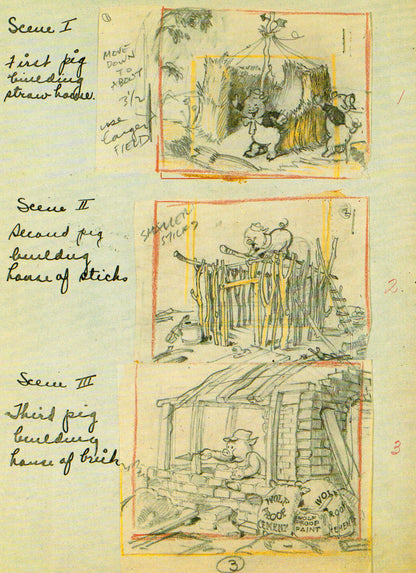 Scene I
First pig
building
straw house.
①
MOVE
DOWN
TO
ABOUT
3 1/2
use
larger
FIELD
1
Scene II
Second pig
building
house of sticks
SMALLER
STICKS
2
2.
Scene III
Third pig
building
house of brick
WOLF
PROOF
CEMENT
WOLF
PROOF
PAINT
WOLF
PROOF
CEMENT
3
③